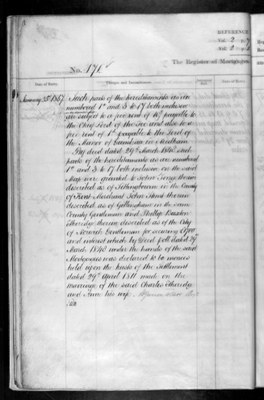 REFERENCE
Vol. 2
Vol. 2
No. 176
The Register of
Date of Entry.
January 25th 1867
Such parts of the hereditaments as are
numbered 1a and 3 to 17 both inclusive
are subject to a fee rent of 10d payable to
the Chief Lord of the Fee and also to a
fee rent of 1d payable to the Lord of
the Manor of in Needham
By deed dated 29th March 1843 such
parts of the hereditaments as are numbered
1a and 3 to 17 both inclusive on the said
Map were granted to John George therein
described as of Sittingbourne in the County
of Kent Merchant John Hurst therein
described as of Gillingham in the same
County Gentleman and Phillip Barton
Etheridge therein described as of the City
of Norwich Gentleman for securing £900
and interest which by Deed poll dated 29th
March 1843 under the hands of the said
Mortgagees was declared to be moneys
held upon the trusts of the Settlement
dated 29th April 1811 made on the
marriage of the said Charles Etheridge
and Anne his wife